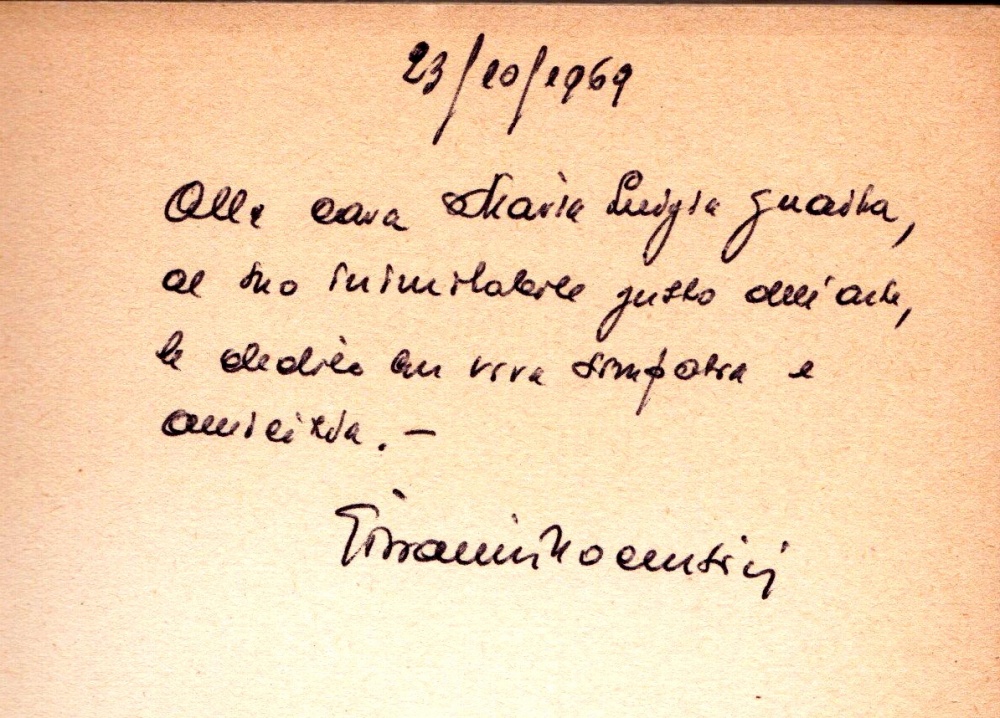 23/10/1969
Alla cara Maria Luigia Guaita,
al suo inimitabile gusto dell'arte,
le dedico con viva simpatia e
amicizia. –
Giovanni